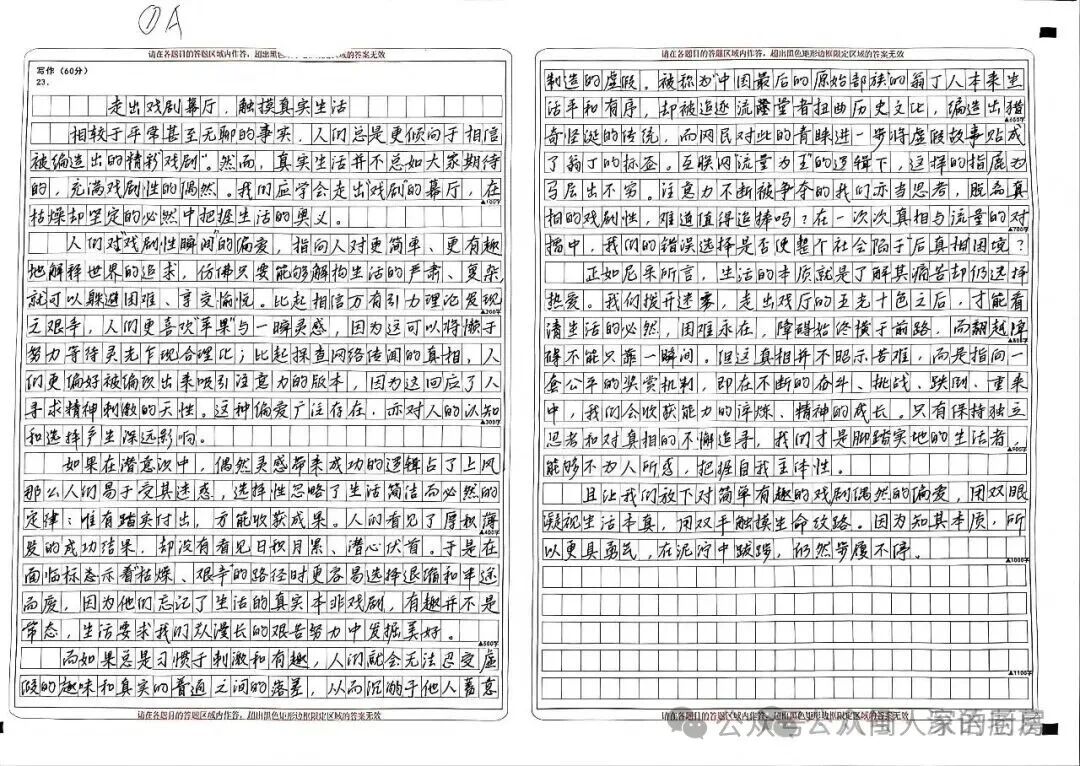 ①A
请在各题目的答题区域内作答，超出黑色矩形边框限定区域的答案无效
写作（60分）
23.
走出戏剧幕厅，触摸真实生活
相较于平常甚至无聊的事实，人们总是更倾向于相信
被编造出的精彩"戏剧"。然而，真实生活并不总如大家期待
的，充满戏剧性的偶然。我们应学会走出"戏剧"的幕厅，在
▲100字
枯燥却坚定的必然中把握生活的奥义。
人们对"戏剧性瞬间"的偏爱，指向人对更简单、更有趣
地解释世界的追求，仿佛只要能够解构生活的严肃、复杂，
就可以躲避困难、享受愉悦。比起相信万有引力理论发现
▲200字
之艰辛，人们更喜欢"苹果"与一瞬灵感，因为这可以将懒于
努力等待灵光乍现合理化；比起探查网络传闻的真相，人
们更偏好被编改出来吸引注意力的版本，因为这回应了人
寻求精神刺激的天性。这种偏爱广泛存在，亦对人的认知
▲300字
和选择产生深远影响。
如果在潜意识中，偶然灵感带来成功的逻辑占了上风
那么人们易于受其迷惑，选择性忽略了生活简洁而必然的
定律：唯有踏实付出，方能收获成果。人们看见了厚积薄
▲400字
发的成功结果，却没有看见日积月累、潜心伏首。于是在
面临标志示着"枯燥、艰辛"的路径时更容易选择退缩和半途
而废，因为他们忘记了生活的真实本非戏剧，有趣并不是
常态，生活要求我们从漫长的艰苦努力中发掘美好。
▲500字
而如果总是习惯于刺激和有趣，人们就会无法忍受虚
假的趣味和真实的普通之间的落差，从而沉溺于他人蓄意
请在各题目的答题区域内作答，超出黑色矩形边框限定区域的答案无效
请在各题目的答题区域内作答，超出黑色矩形边框限定区域的答案无效
制造的虚假。被称为"中国最后的原始部族"的翁丁人本来生
活平和有序，却被追逐流量者扭曲历史文化，编造出猎
▲600字
奇怪诞的传统，而网民对此的青睐进一步将虚假故事贴成
了翁丁的标签。互联网"流量为王"的逻辑下，这样的指鹿为
马层出不穷。注意力不断被争夺的我们亦当思考，脱名真
相的戏剧性，难道值得追捧吗？在一次次真相与流量的对
▲700字
擂中，我们的错误选择是否使整个社会陷于"后真相困境"？
正如尼采所言，生活的本质就是了解其痛苦却仍选择
热爱。我们拨开迷雾，走出戏厅的五光十色之后，才能看
清生活的必然，困难永在，障碍始终横于前路，而翻越障
▲800字
碍不能只靠一瞬间。但这真相并不昭示苦难，而是指向一
套公平的奖赏机判，即在不断的奋斗、挑战、跌倒、重来
中，我们会收获能力的淬炼、精神的成长。只有保持独立
思考和对真相的不懈追寻，我们才是脚踏实地的生活者，
▲900字
能够不为人所惑，把握自我主体性。
且让我们放下对简单有趣的戏剧偶然的偏爱，用双眼
凝视生活本真，用双手触摸生命纹路。因为知其本质，所
以更具勇气，在泥泞中跋涉，仍然步履不停。
▲1000字
▲1100字
请在各题目的答题区域内作答，超出黑色矩形边框限定区域的答案无效
公众号公众闽人家的厨房